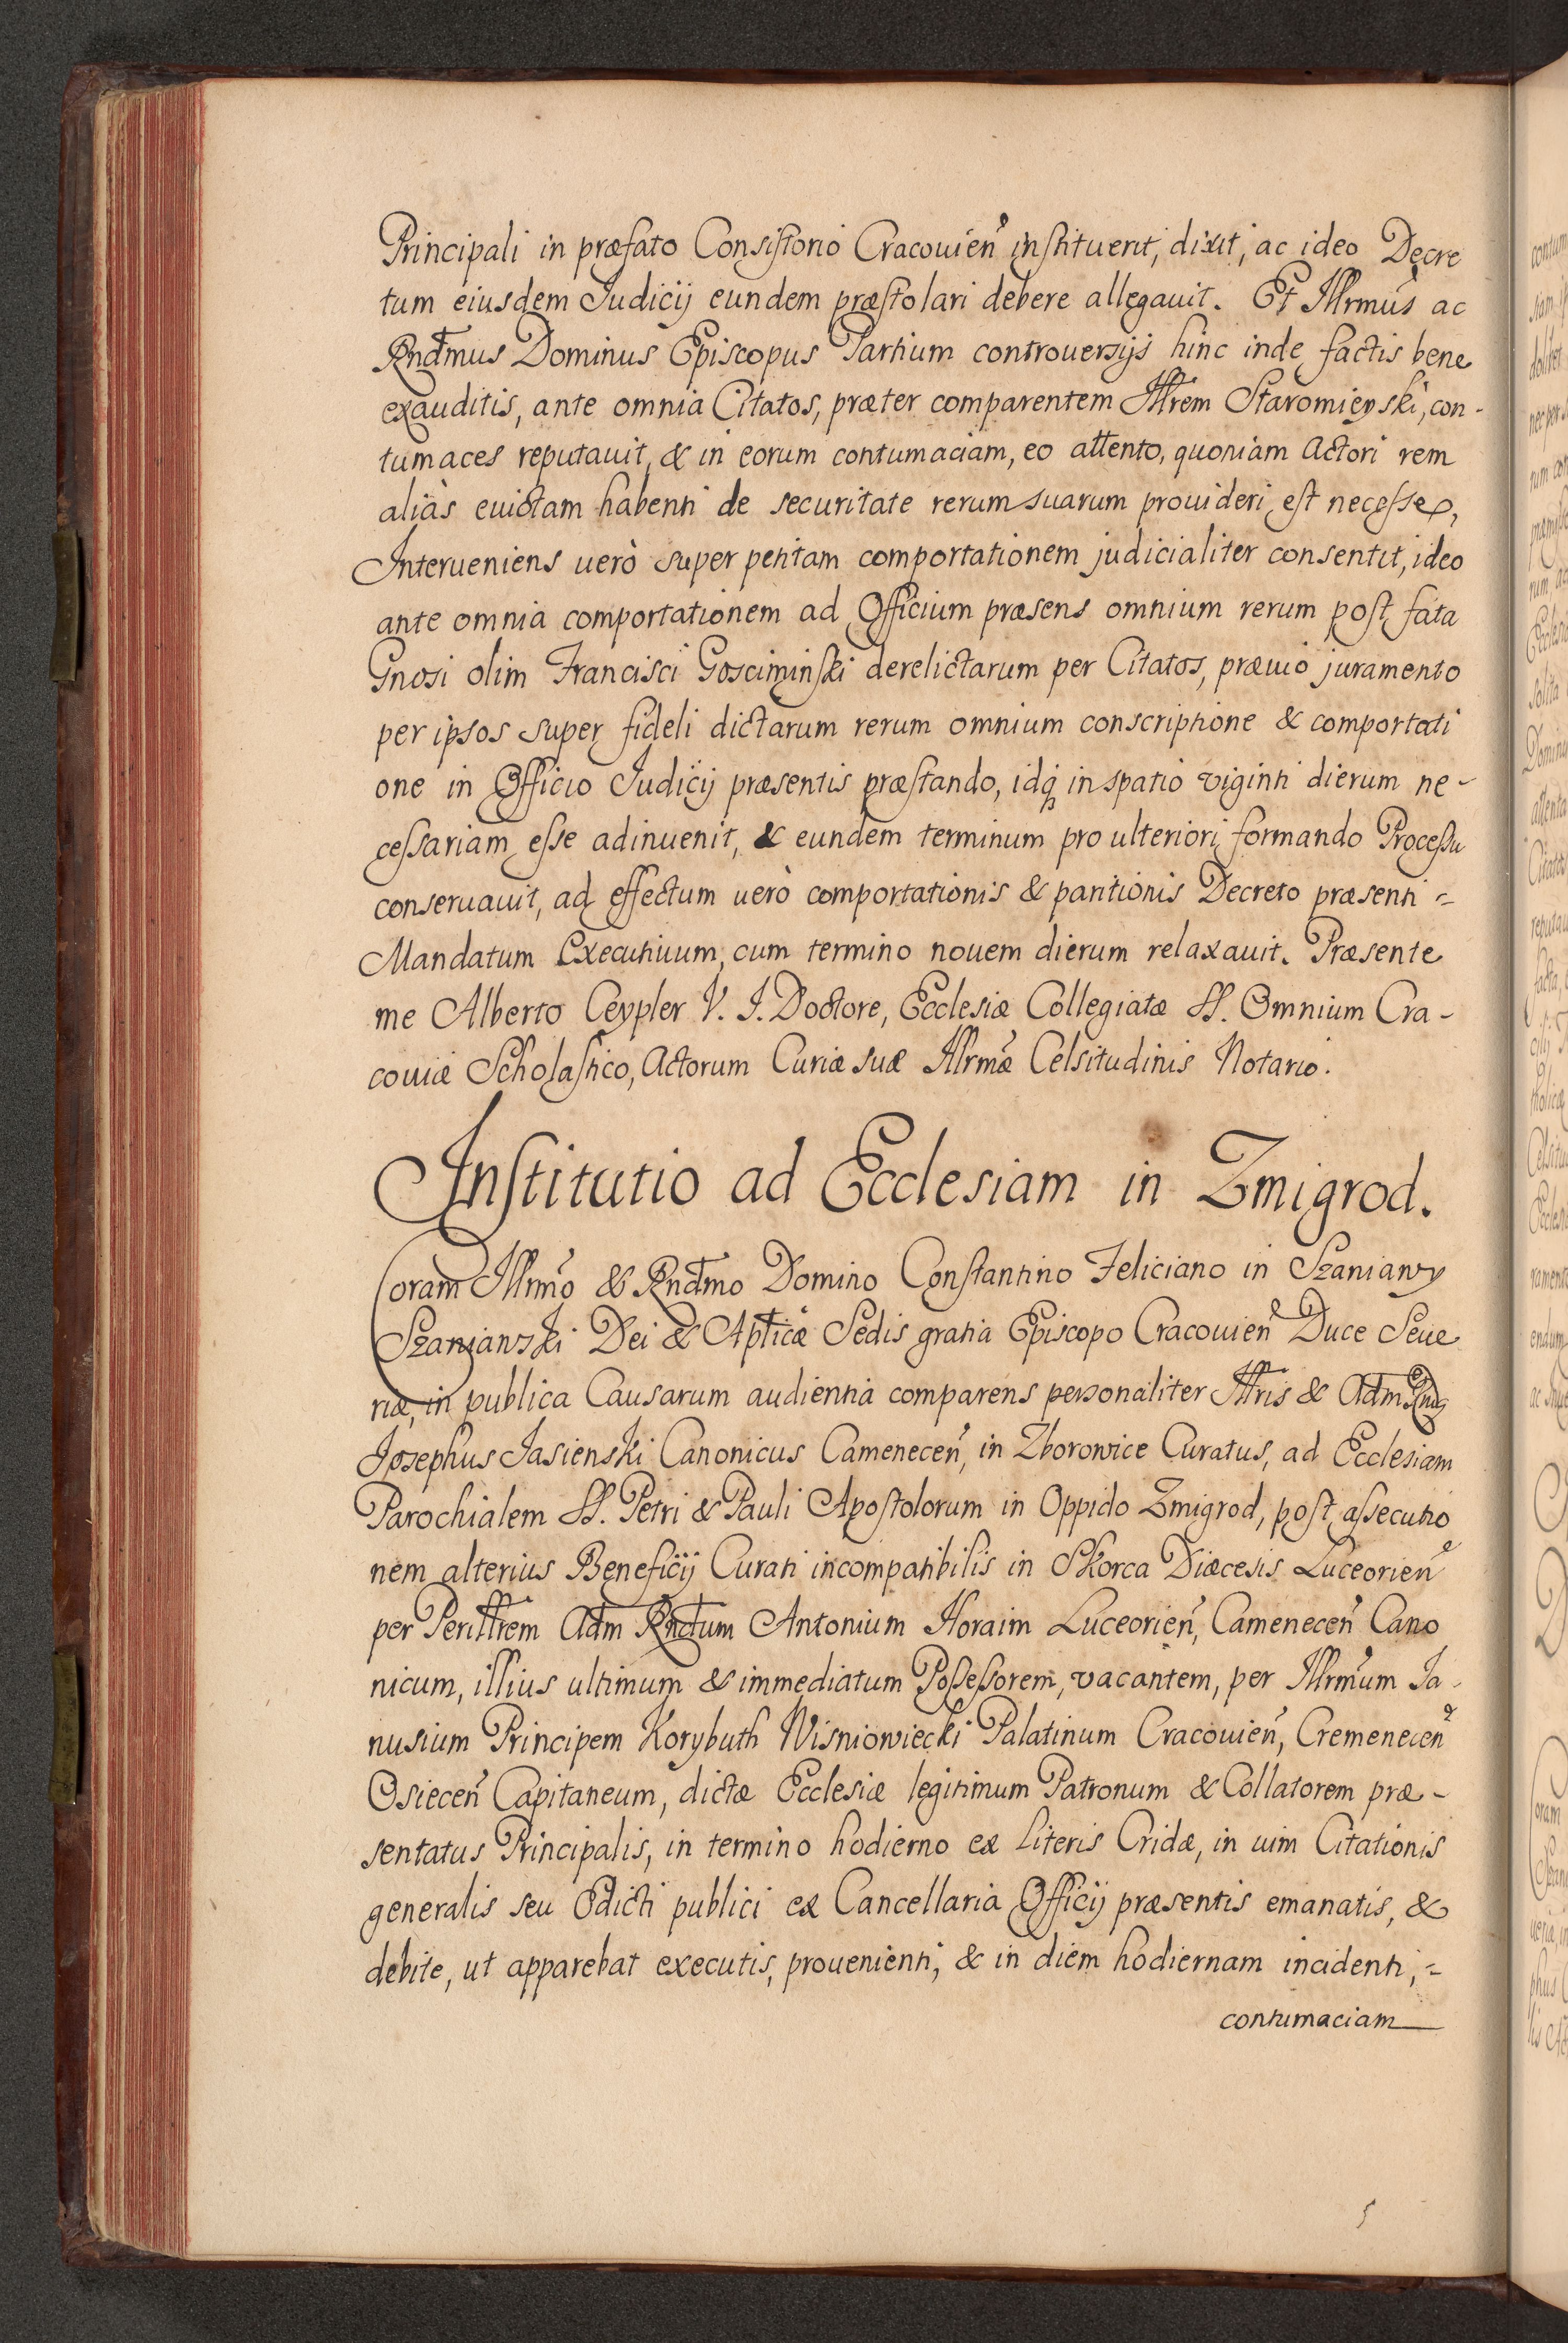 Principali in præfato Consistorio Cracouień instituerit, dixit, ac ideo Decre
tum eiusdem Judicij eundem præstolari debere allegauit. Et Illrmus ac
Rndmus Dominus Episcopus Partium controuersijs hinc inde factis bene
exauditis, ante omnia Citatos, præter comparentem Illrem Staromieyski, con-
tumaces reputauit, & in eorum contumaciam, eo attento, quoniam Actori rem
aliàs euictam habenti de securitate rerum suarum prouideri est necesse,
Interueniens uerò super petitam comportationem judicialiter consentit, ideo
ante omnia comportationem ad Officium præsens omnium rerum post fata
Gnosi olim Francisci Gosciminski derelictarum per Citatos, præuio juramento
per ipsos super fideli dictarum rerum omnium conscriptione & comportati
one in Officio Judicij præsentis præstando, idq; in spatio viginti dierum ne-
cessariam esse adinuenit, & eundem terminum pro ulteriori formando Processu
conseruauit, ad effectum uerò comportationis & paritionis Decreto præsenti =
Mandatum Executiuum, cum termino nouem dierum relaxauit. Præsente
me Alberto Ceypler V. J. Doctore, Ecclesiæ Collegiatæ SS. Omnium Cra-
couiæ Scholastico, Actorum Curiæ suæ Illrmæ Celsitudinis Notario.
Institutio ad Ecclesiam in Zmigrod.
Coram Illrmo & Rndmo Domino Constantino Feliciano in Szaniawy
Szaniawski Dei & Apticæ Sedis gratia Episcopo Cracouień Duce Seue
riæ, in publica Causarum audientia comparens personaliter Illris & Adm Rndus
Josephus Jasienski Canonicus Cameneceń, in Zborowice Curatus, ad Ecclesiam
Parochialem SS. Petri & Pauli Apostolorum in Oppido Zmigrod, post assecutio
nem alterius Beneficij Curati incompatibilis in Skorca Diæcesis Luceorień
per Perillrem Adm Rndum Antonium Horaim Luceorień, Cameneceń Cano
nicum, illius ultimum & immediatum Possessorem, vacantem, per Illrmum Ja-
nusium Principem Korybuth Wisniowiecki Palatinum Cracouień, Cremeneceń
Osieceń Capitaneum, dictæ Ecclesiæ legitimum Patronum & Collatorem præ-
sentatus Principalis, in termino hodierno ex Literis Cridæ, in uim Citationis
generalis seu Edicti publici ex Cancellaria Officij præsentis emanatis, &
debite, ut apparebat executis, prouenienti, & in diem hodiernam incidenti, =
contumaciam